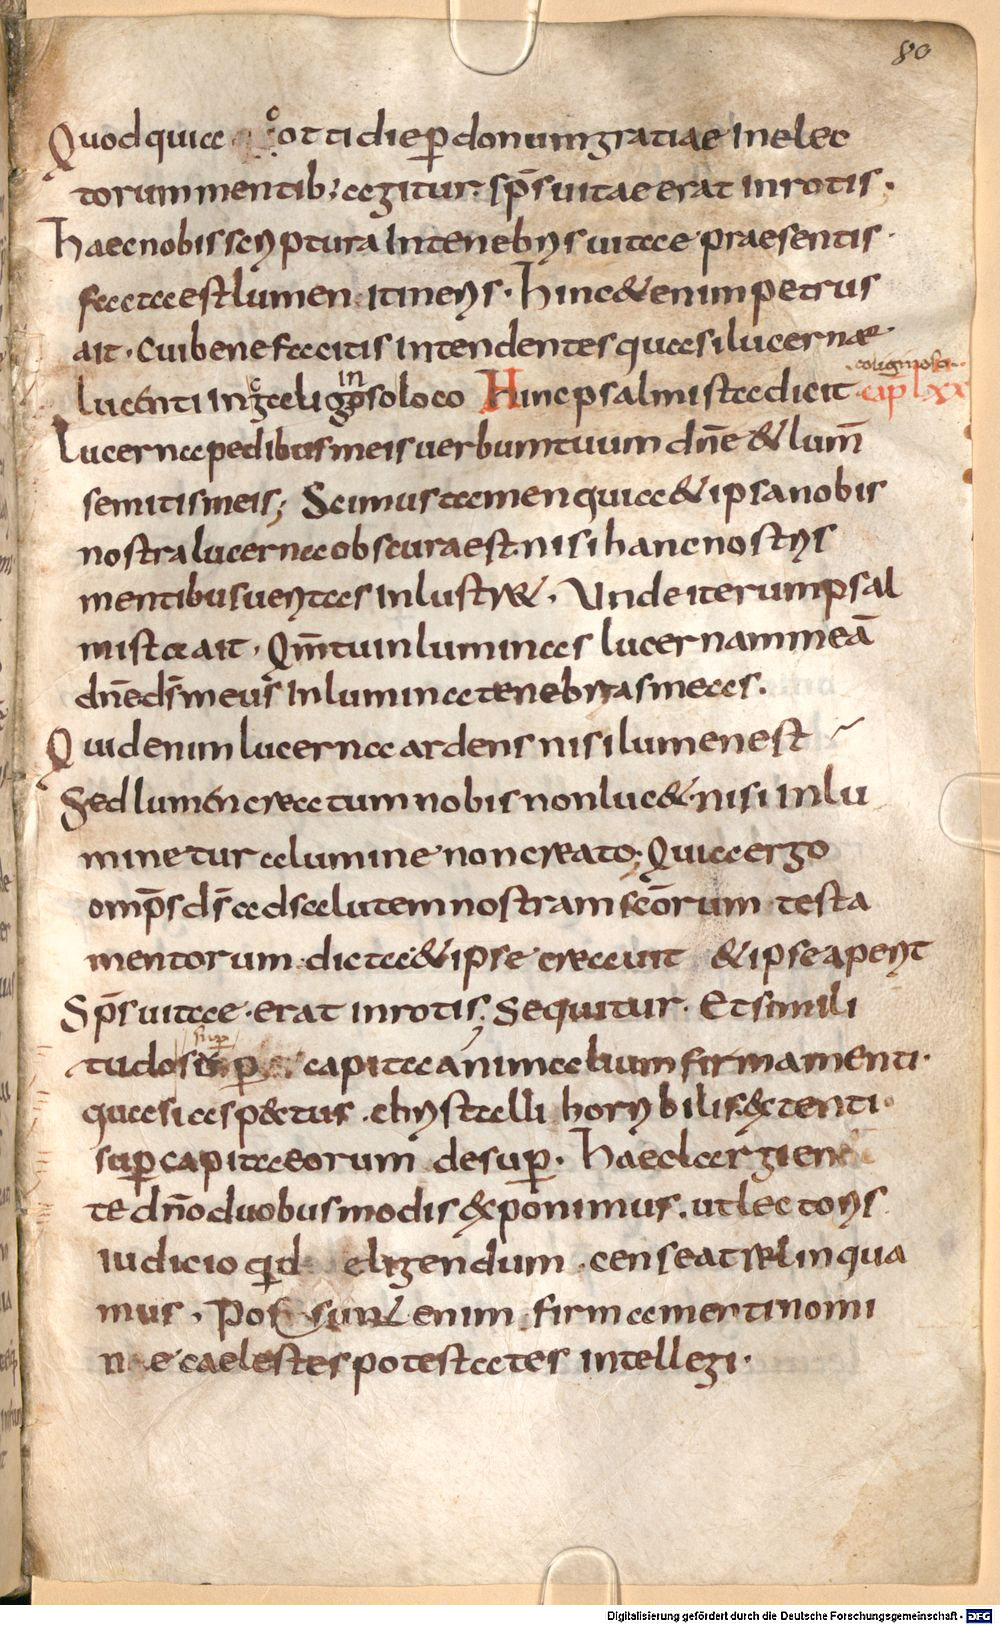 80
Quod quia cottidie ꝑ donum gratiae in elec
torum mentib; agitur. sp̄s uitae erat in rotis.
Haec nobis scriptura in tenebris uitae praesentis.
facta est lumen itineris. Hinc & enim petrus
ait. Cui bene facitis intendentes quasi lucernæ
caliginoso
lucenti in caliginoso loco Hinc psalmista dicit. cap̄ lxx
Lucerna pedibus meis uerbum tuum dn̄e & lum̄
semitis meis; Scimus tamen quia & ipsa nobis
nostra lucerna obscura est. nisi hanc nostris
mentibus ueritas inlustr&. Unde iterum psal
mista ait. Qm̄ tu inluminas lucernam meā
dn̄e ds̄ meus inlumina tenebras meas.
Quid enim lucerna ardens nisi lumen est
Sed lumen creatum nobis non luc&. nisi inlu
minetur a lumine non creato; Quia ergo
omp̄s ds̄ ad salutem nostram sc̄orum testa
mentorum dicta & ipse creauit & ipse aperit
Sp̄s uitae. erat in rotis; Sequitur. Et simili
suꝑ
tudo suꝑ capita animalium firmamenti.
quasi aspectus. christalli horribilis. & tenti
suꝑ capita eorum desuꝑ. Haec largien
te dn̄o duobus modis exponimus. ut lectoris
iudicio qid eligendum. censeat relinqua
mus. Possunt enim firmamenti nomi
ne caelestes potestates intellegi.
Digitalisierung gefördert durch die Deutsche Forschungsgemeinschaft - DFG